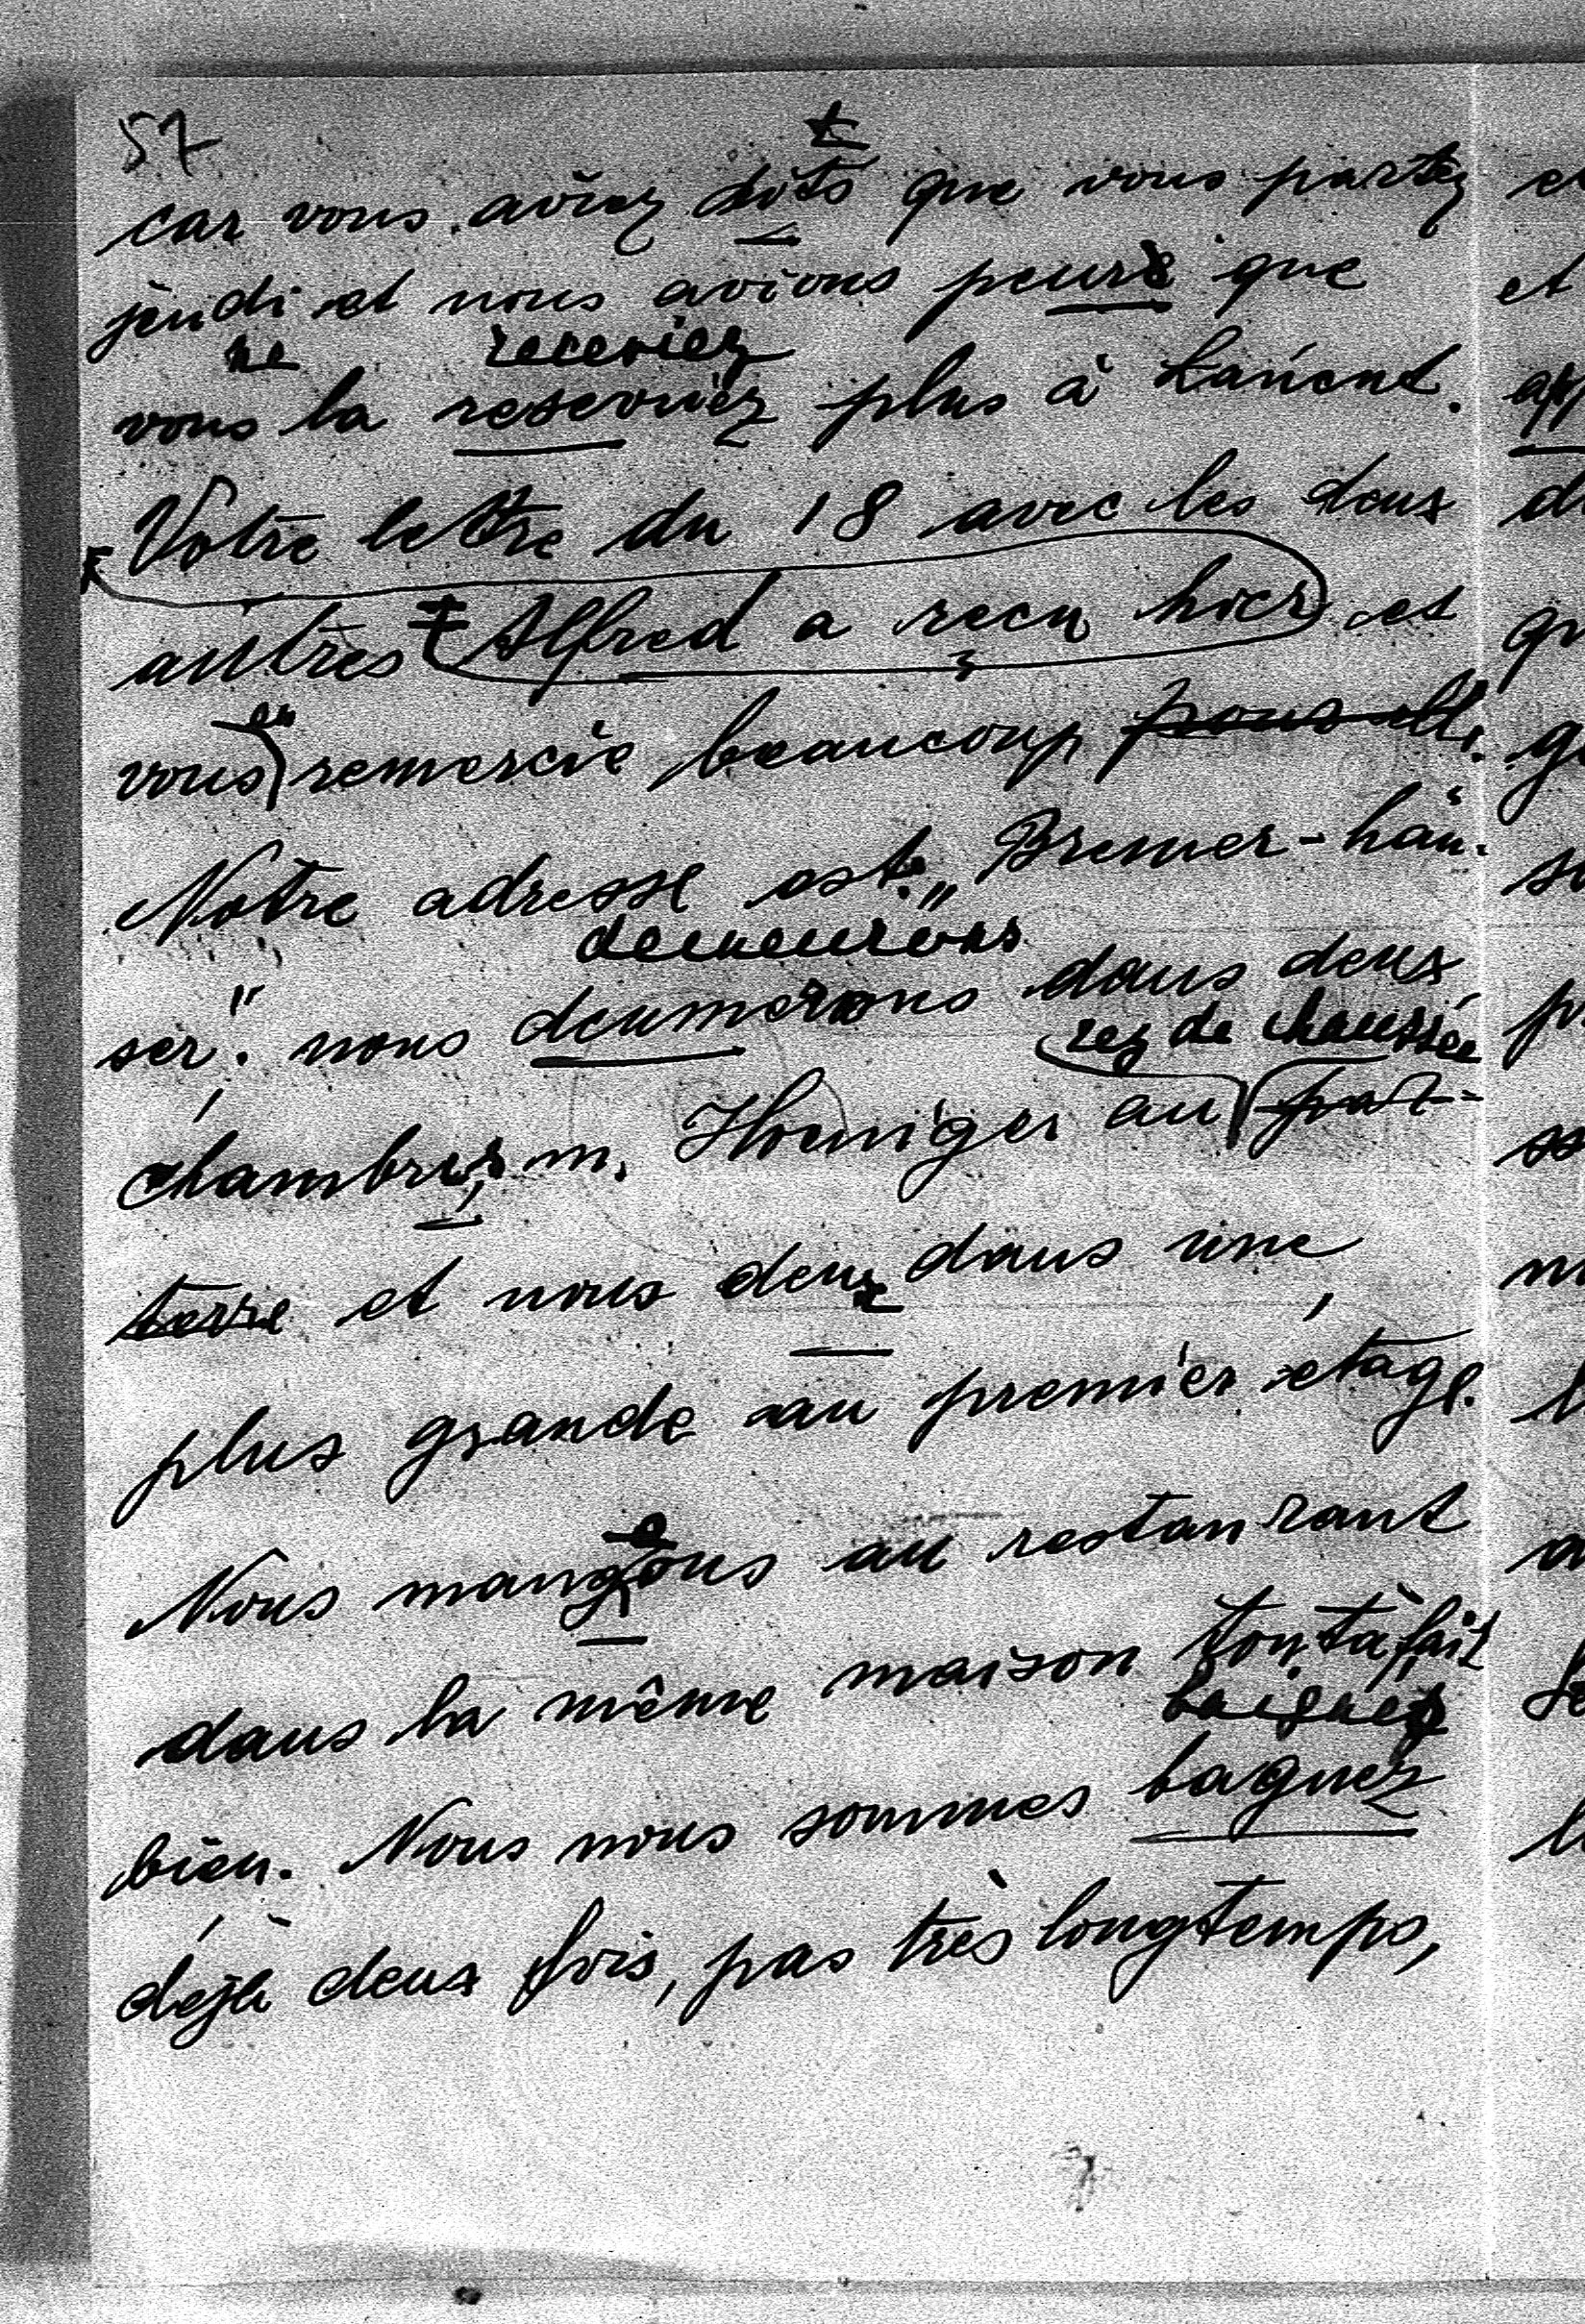 57
t
car vous aviez dits que vous partez
jeudi et nous avions peure que
ne receviez
vous la reseviez plus à
Votre lettre du 18 avec les deux
autres Alfred a reçu hier et
en
vous remercie beaucoup pour elle.
Notre adresse est: „Bremer-häu-
demeurons
ser". nous deumerons dans deux
rez de chaussée
chambres, m. Hoeniger au par-
terre et nous deux dans une
plus grande au premier étage.
e
Nous mangons au restaurant
dans la même maison tout à fait
baignés
bien. Nous nous sommes bagnez
déjà deux fois, pas très longtemps,